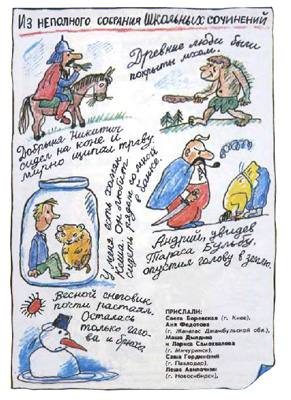 Из неполного собрания школьных сочинений
Древние люди были
покрыты мхом.
Добрыня Никитич
сидел на коне и
мирно щипал траву.
У меня есть хомяк
Кеша. Он любит
сидеть рядом со мной
в банке.
Андрий, увидев
Тараса Бульбу,
опустил голову в землю.
Весной снеговик
почти растаял.
Осталась
только голо-
ва и брюхо.
ПРИСЛАЛИ:
Света Боровская (г. Киев),
Аня Федотова
(г. Жанатас Джамбульской обл.),
Маша Дылдина
и Лариса Самохвалова
(г. Мичуринск),
Саша Гординский
(г. Павлодар),
Леша
(г. Новосибирск).